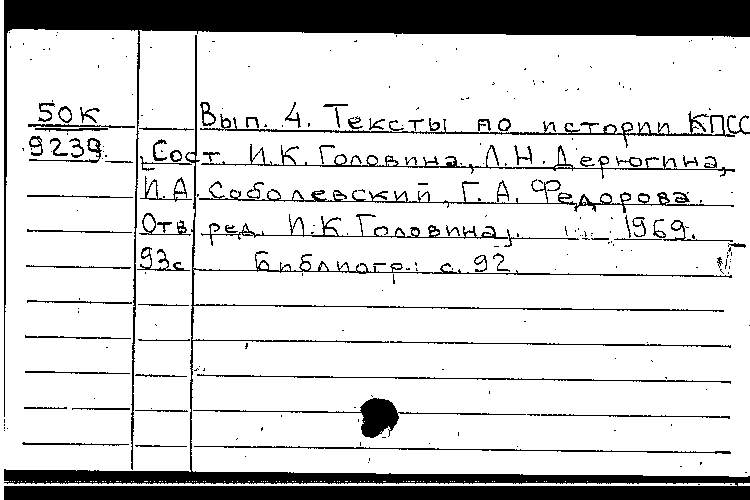 50К Вып. 4. Тексты по истории КПСС
9239 [Сост. И.К. Головина, Л.Н. Дерюгина,
И.А. Соболевский, Г.А. Федорова.
Отв. ред. И.К. Головина]. 1969.
93с Библиогр.: с. 92.